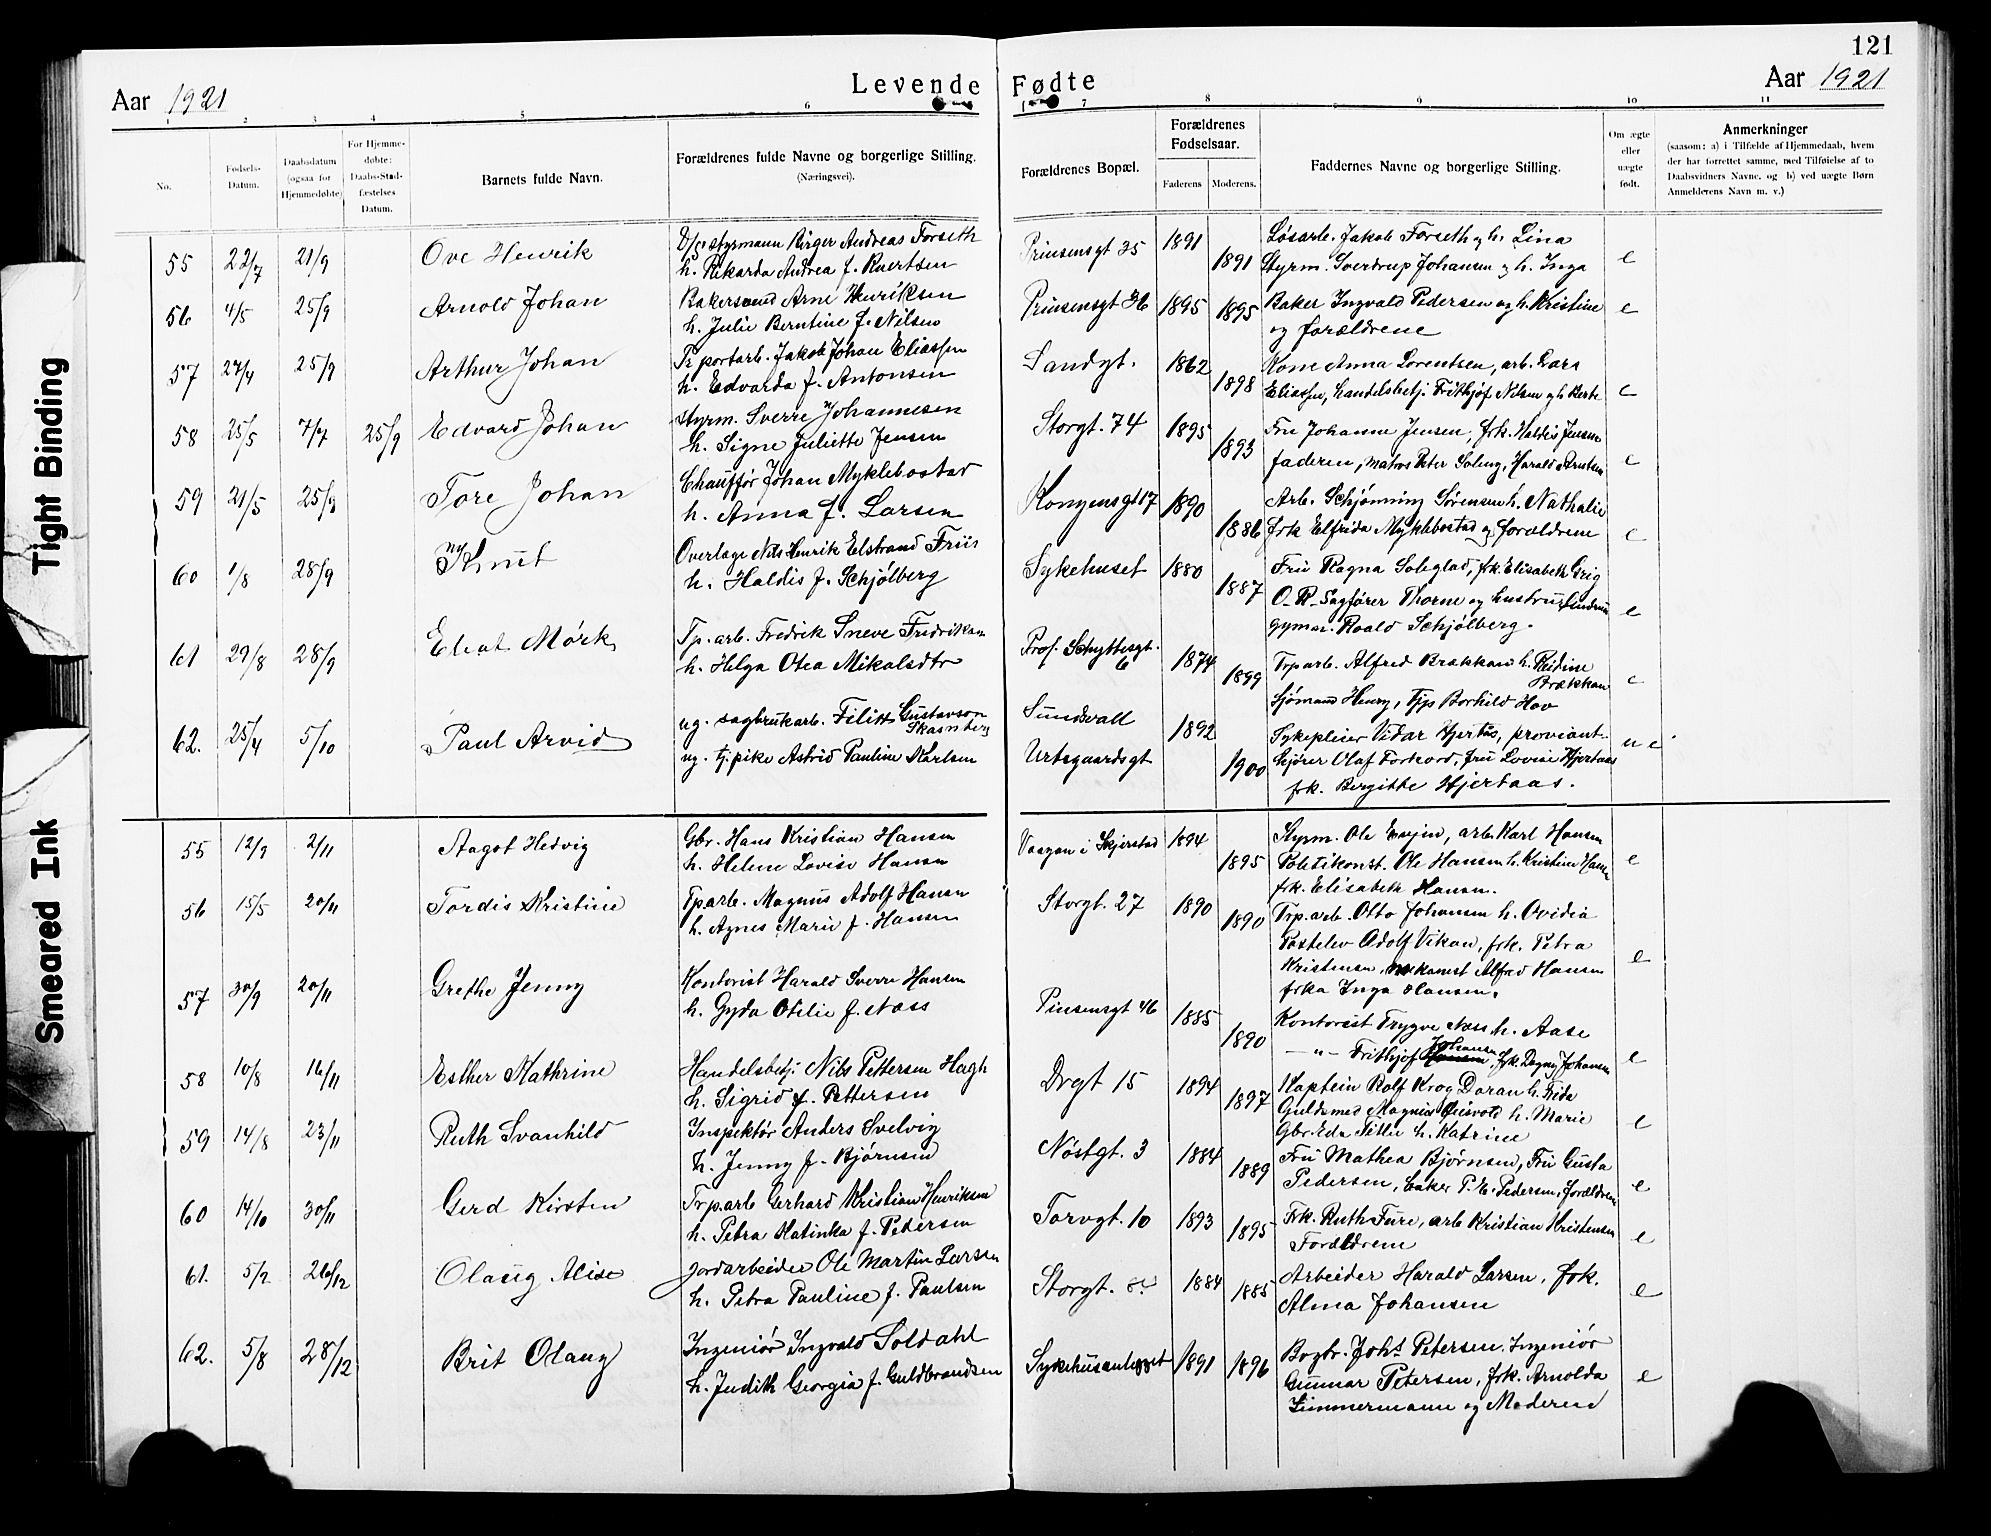 121
Levende Fødte
Aar 1921
Aar 1921
1 2 3 4 5 6 7 8 9 10 11
No.
Fødsels-Datum.
Daabsdatum (ogsaa for Hjemmedøbte)
For Hjemmedøbte: Daabs-Stadfæstelses Datum.
Barnets fulde Navn.
Forældrenes fulde Navne og borgerlige Stilling.
(Næringsvei).
Forældrenes Bopæl.
Forældrenes Fødselsaar.
Faderens. Moderens.
Faddernes Navne og borgerlige Stilling.
Om ægte eller uægte født.
Anmerkninger
(saasom: a) i Tilfælde af Hjemmedaab, hvem
der har forrettet samme, med Tilføielse af to
Daabsvidners Navne, og b) ved uægte Børn
Anmelderens Navn m. v.)
55 22/7 21/9 Ove Henrik styrmann Birger Andreas Forseth Prinsensgt 35 1891 Løsarb. Jakob Forseth og h. Lina
h. Rikarda Andrea f. Evertsen 1891 Styrm. Sverdrup Johansen og h. Inga e
56 4/5 25/9 Arnold Johan Bakersvend Arne Henriksen Prinsensgt 1895 1895 Baker Ingvald Pedersen og h. Kristine e
h. Julie Berntine f. Nilsen og forældrene
57 25/9 Arthur Johan Trportarb. Jakob Johan Eliassen Sandgt. 1862 Kone Anna Lorentsen, arb. Lars
h. Edvarda f. Antonsen 1898 Eliassen, handelsbetj. Frithjof Nilsen e
58 25/5 7/7 25/9 Edvard Johan Styrm. Sverre Johannesen Storgt. 74 1895 Fru Johanne Jensen, frk. Haldis Jensen
h. Signe Juliette Jensen 1893 faderen, matros Peter Harald e
59 21/5 25/9 Tore Johan Chauffør Johan Myklebostad Kongensgt 17 1890 Arb. Schjønning Sørensen h. Nathalie
h. Anna f. Larsen 1886 frk Elfrida Myklebostad og forældrene e
60 1/8 28/9 Knut Overlæge Nils Henrik Elstrand Friis Sykehuset 1880 Fru Ragna Soleglad, frk. Elisabeth Grig
h. Haldis f. Schjølberg 1887 O-R-Sagfører Thorne og hustru e
gymn. Roald Schjølberg.
61 29/8 28/9 Mørk Tp. arb. Fredrik Sneve Fredriksen Prof. Schyttesgt. 6 1874 Trparb. Alfred Brækkan h. Reidine
Brækkan
h. Helga Otea Mikalsdtr 1899 Sjømand Henry, Borhild Hov e
62. 25/4 5/10 Paul Arvid ug. sagbrukarb. Gustavson Sundsvall 1892 Sykepleier Vidar Hjertås, proviant-
ug. tj. pike Astrid Pauline Karlsen Urtegaardsgt 1900 skjører Olaf Forkord, fru Lovise Hjertaas u e
frk. Bergitte Hjertaas.
55 12/9 2/11 Aagot Hedvig Gbr. Hans Kristian Hansen Vaagan i Skjerstad 1894 Styrm. Ole Evejen, arb. Karl Hansen
h. Helene Lovise Hansen 1895 Politikonst. Ole Hansen h. Kristine Hansen e
frk. Elisabeth Hansen.
56 15/5 20/11 Tordis Kristine Tparb. Magnus Adolf Hansen Storgt. 27 1890 Trp. arb. Otto Johansen h. Ovidia
h. Agnes Marie f. Hansen 1890 Postelev Adolf Vikan, frk. Petra e
Kristensen, Alfred Hansen
frka Inga Hansen.
57 30/9 20/11 Grethe Jenny Kontorist Harald Sverre Hansen Pinsensgt 46 1885 Kontorist Trygve Næss h. Aase
h. Gyda Otelie f. Næss 1890 — " — Frithjof Johansen, frk. Dagny Johansen e
58 10/8 16/11 Esther Kathrine Handelsbetj. Nils Pettersen Hagh Drgt 15 1894 Kaptein Rolf Krog Daran h.
h. Sigrid f. Pettersen 1897 Guldsmed Magnus h. Marie e
Gbr. Edv. h. Katrine
59 14/8 23/11 Ruth Svanhild Inspektør Anders Svelvig Nøstgt. 3 1884 Fru Mathea Bjørnsen, Fru Gusta
h. Jenny f. Bjørnsen 1889 Pedersen, baker P. E. Pedersen, forældrene e
60 14/10 30/11 Gerd Kirsten Trp.arb Gerhard Kristian Henriksen Torvgt. 10 1893 Frk. Ruth Fure, arb Kristian Kristensen
h. Petra Katinka f. Pedersen 1895 Forældrene e
61. 5/2 26/12 Olaug Alise Jordarbeider Ole Martin Larsen Storgt. 1884 Arbeider Harald Larsen, frk.
h. Petra Pauline f. Paulsen 1885 Alma Johansen e
62. 5/8 28/12 Brit Olaug Ingeniør Ingvald Soldahl Sykehusanlegget 1891 1896 Bogtr. Johs Petersen, Ingeniør
h. Judith Georgia f. Guldbrandsen Gunnar Petersen, frk. Arnolda e
Simmermann og Moderen
Tight Binding
Smeared Ink